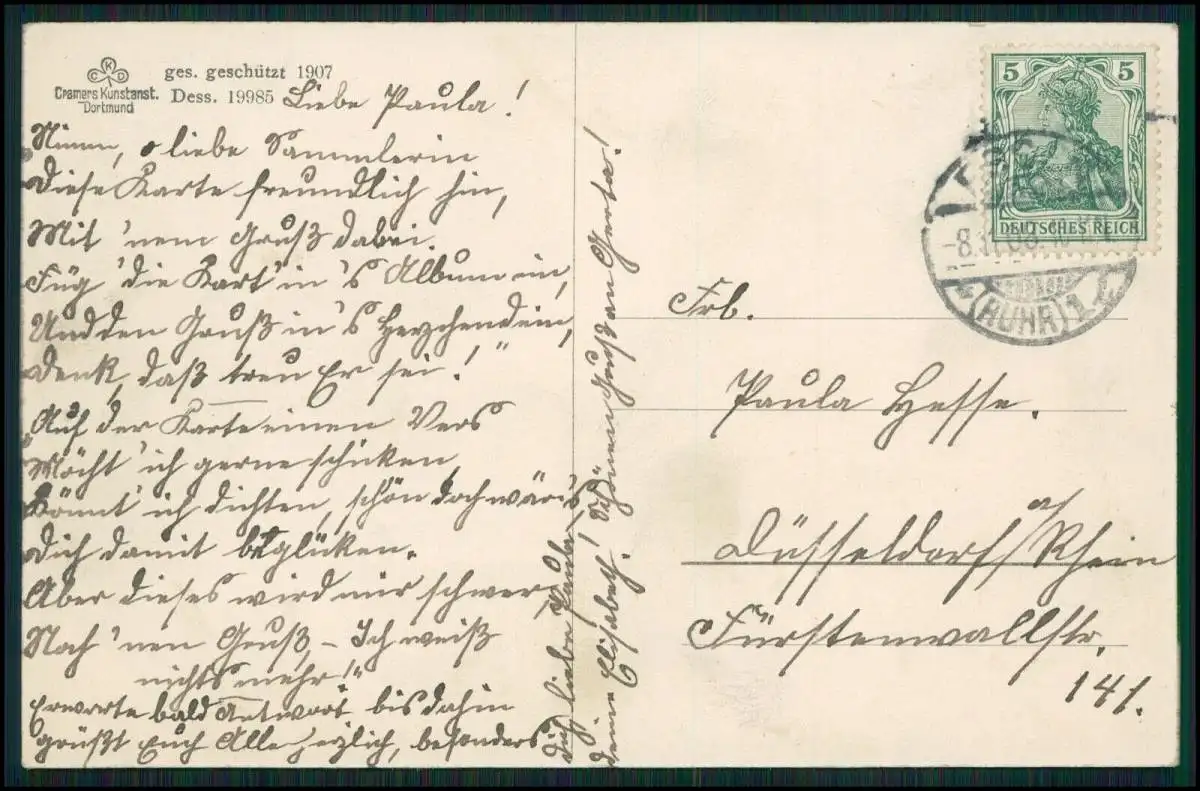 C K D
Cramers Kunstanst.
Dortmund
ges. geschützt 1907
Dess. 19985
Liebe Paula!
„Nimm, o liebe Sammlerin
Diese Karte freundlich hin,
Mit 'nem Gruß dabei.
Füg' die Kart' in's Album ein,
Und den Gruß in's Herzchen dein,
Denk, daß treu Er sei!"
„Auf der Karte einen Vers
Möcht' ich gerne schicken,
Könnt' ich dichten, schön doch wär's
Dich damit beglücken.
Aber dieses wird mir schwer
Noch 'nen Gruß, – Ich weiß
nichts mehr!"
Erwarte bald Antwort bis dahin
grüßt Euch Alle herzlich, besonders
Dich liebe Paula,
deine Elisabeth! Schönen Gruß an Gerta!
5 5
DEUTSCHES REICH
(RUHR) 1
Frl.
Paula Hesse.
Düsseldorf a/Rhein
Fürstenwallstr.
141.